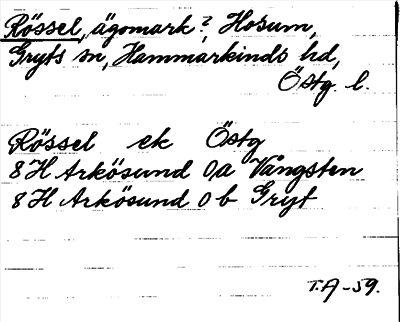 Rössel, ägomark?, Hosum,
Gryts sn, Hammarkinds hd,
Östg. l.
Rössel ek Östg
8 H Arkösund 0,a Vångsten
8 H Arkösund 0 b Gryt
T.A-59.